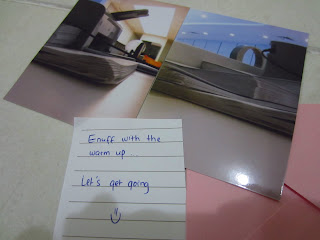 Enuff with the
warm up...
Let's get going